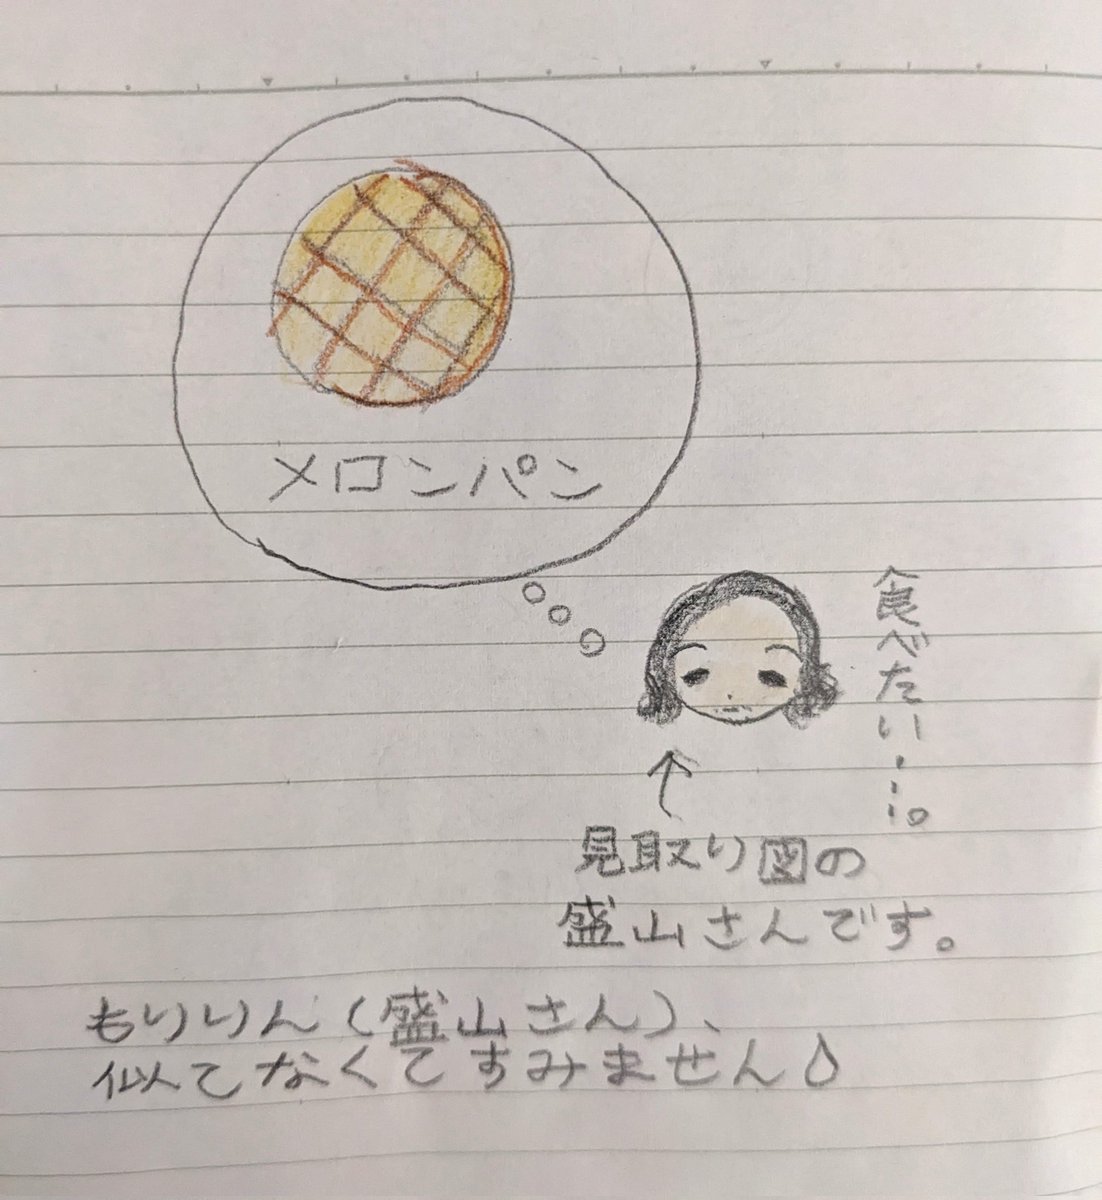 メロンパン
食べたい・・・。
見取り図の
盛山さんです。
もりりん(盛山さん)、
似てなくてすみません